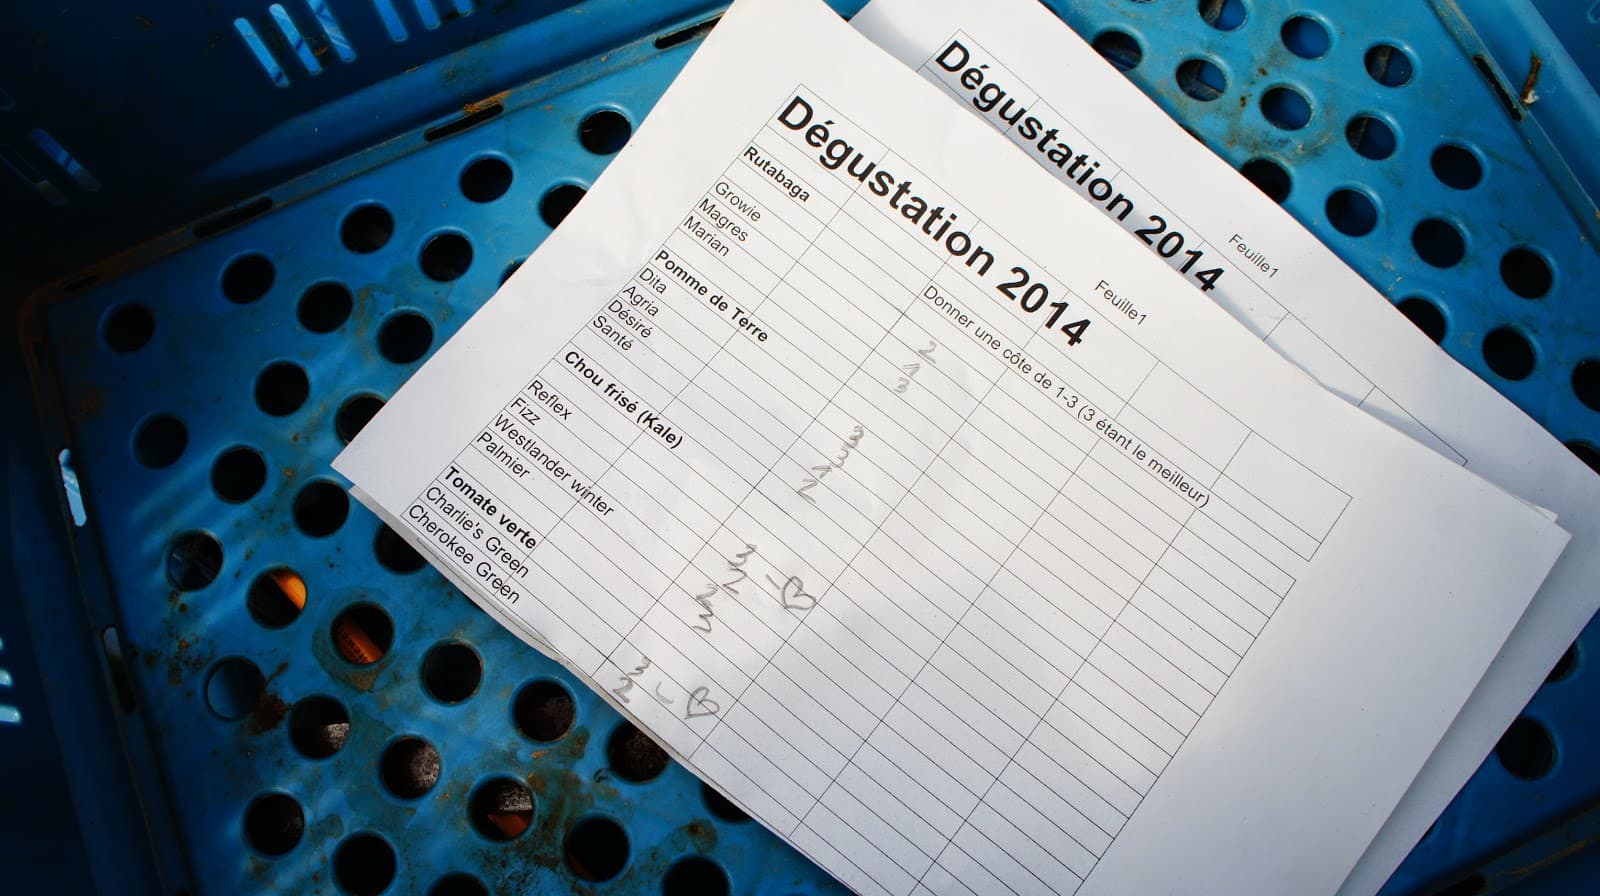 Dégustation 2014
Feuille1
Dégustation 2014
Feuille1
Donner une côte de 1-3 (3 étant le meilleur)
Rutabaga
Growie 2
Magres 1
Marian 3
Pomme de Terre
Dita 3
Agria 3
Désiré 1
Santé 2
Chou frisé (Kale)
Reflex 3
Fizz 2 - ♡
Westlander winter 2
Palmier 3
Tomate verte
Charlie's Green 3 - ♡
Cherokee Green 2